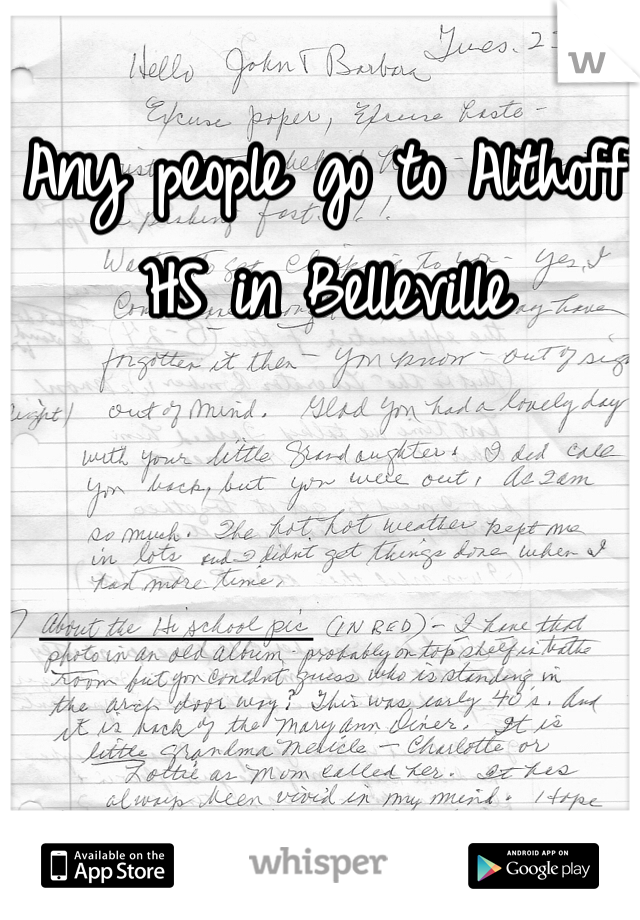 Tues. 23
w
Hello John & Barbara
Excuse paper, Excuse haste -
Any people go to Althoff
fast
HS in Belleville
to you - Yes, I
have
forgotten it then - you know - out of sig
out of mind. Glad you had a lovely day
with your little Grandaughter. I did call
you back, but you were out. As I am
so much. The hot, hot weather kept me
in lots and I didn't get things done when I
had more time.
About the Hi school pic (IN RED) - I have that
photo in an old album - probably on top shelf in bathe
room but you couldnt guess who is standing in
the arch door way? This was early 40's. And
it is back of the Mary Ann Diner. It is
little Grandma Mericle - Charlotte or
Lottie as Mom called her. It has
always been vivid in my mind. Hope
Available on the
App Store
whisper
ANDROID APP ON
Google play